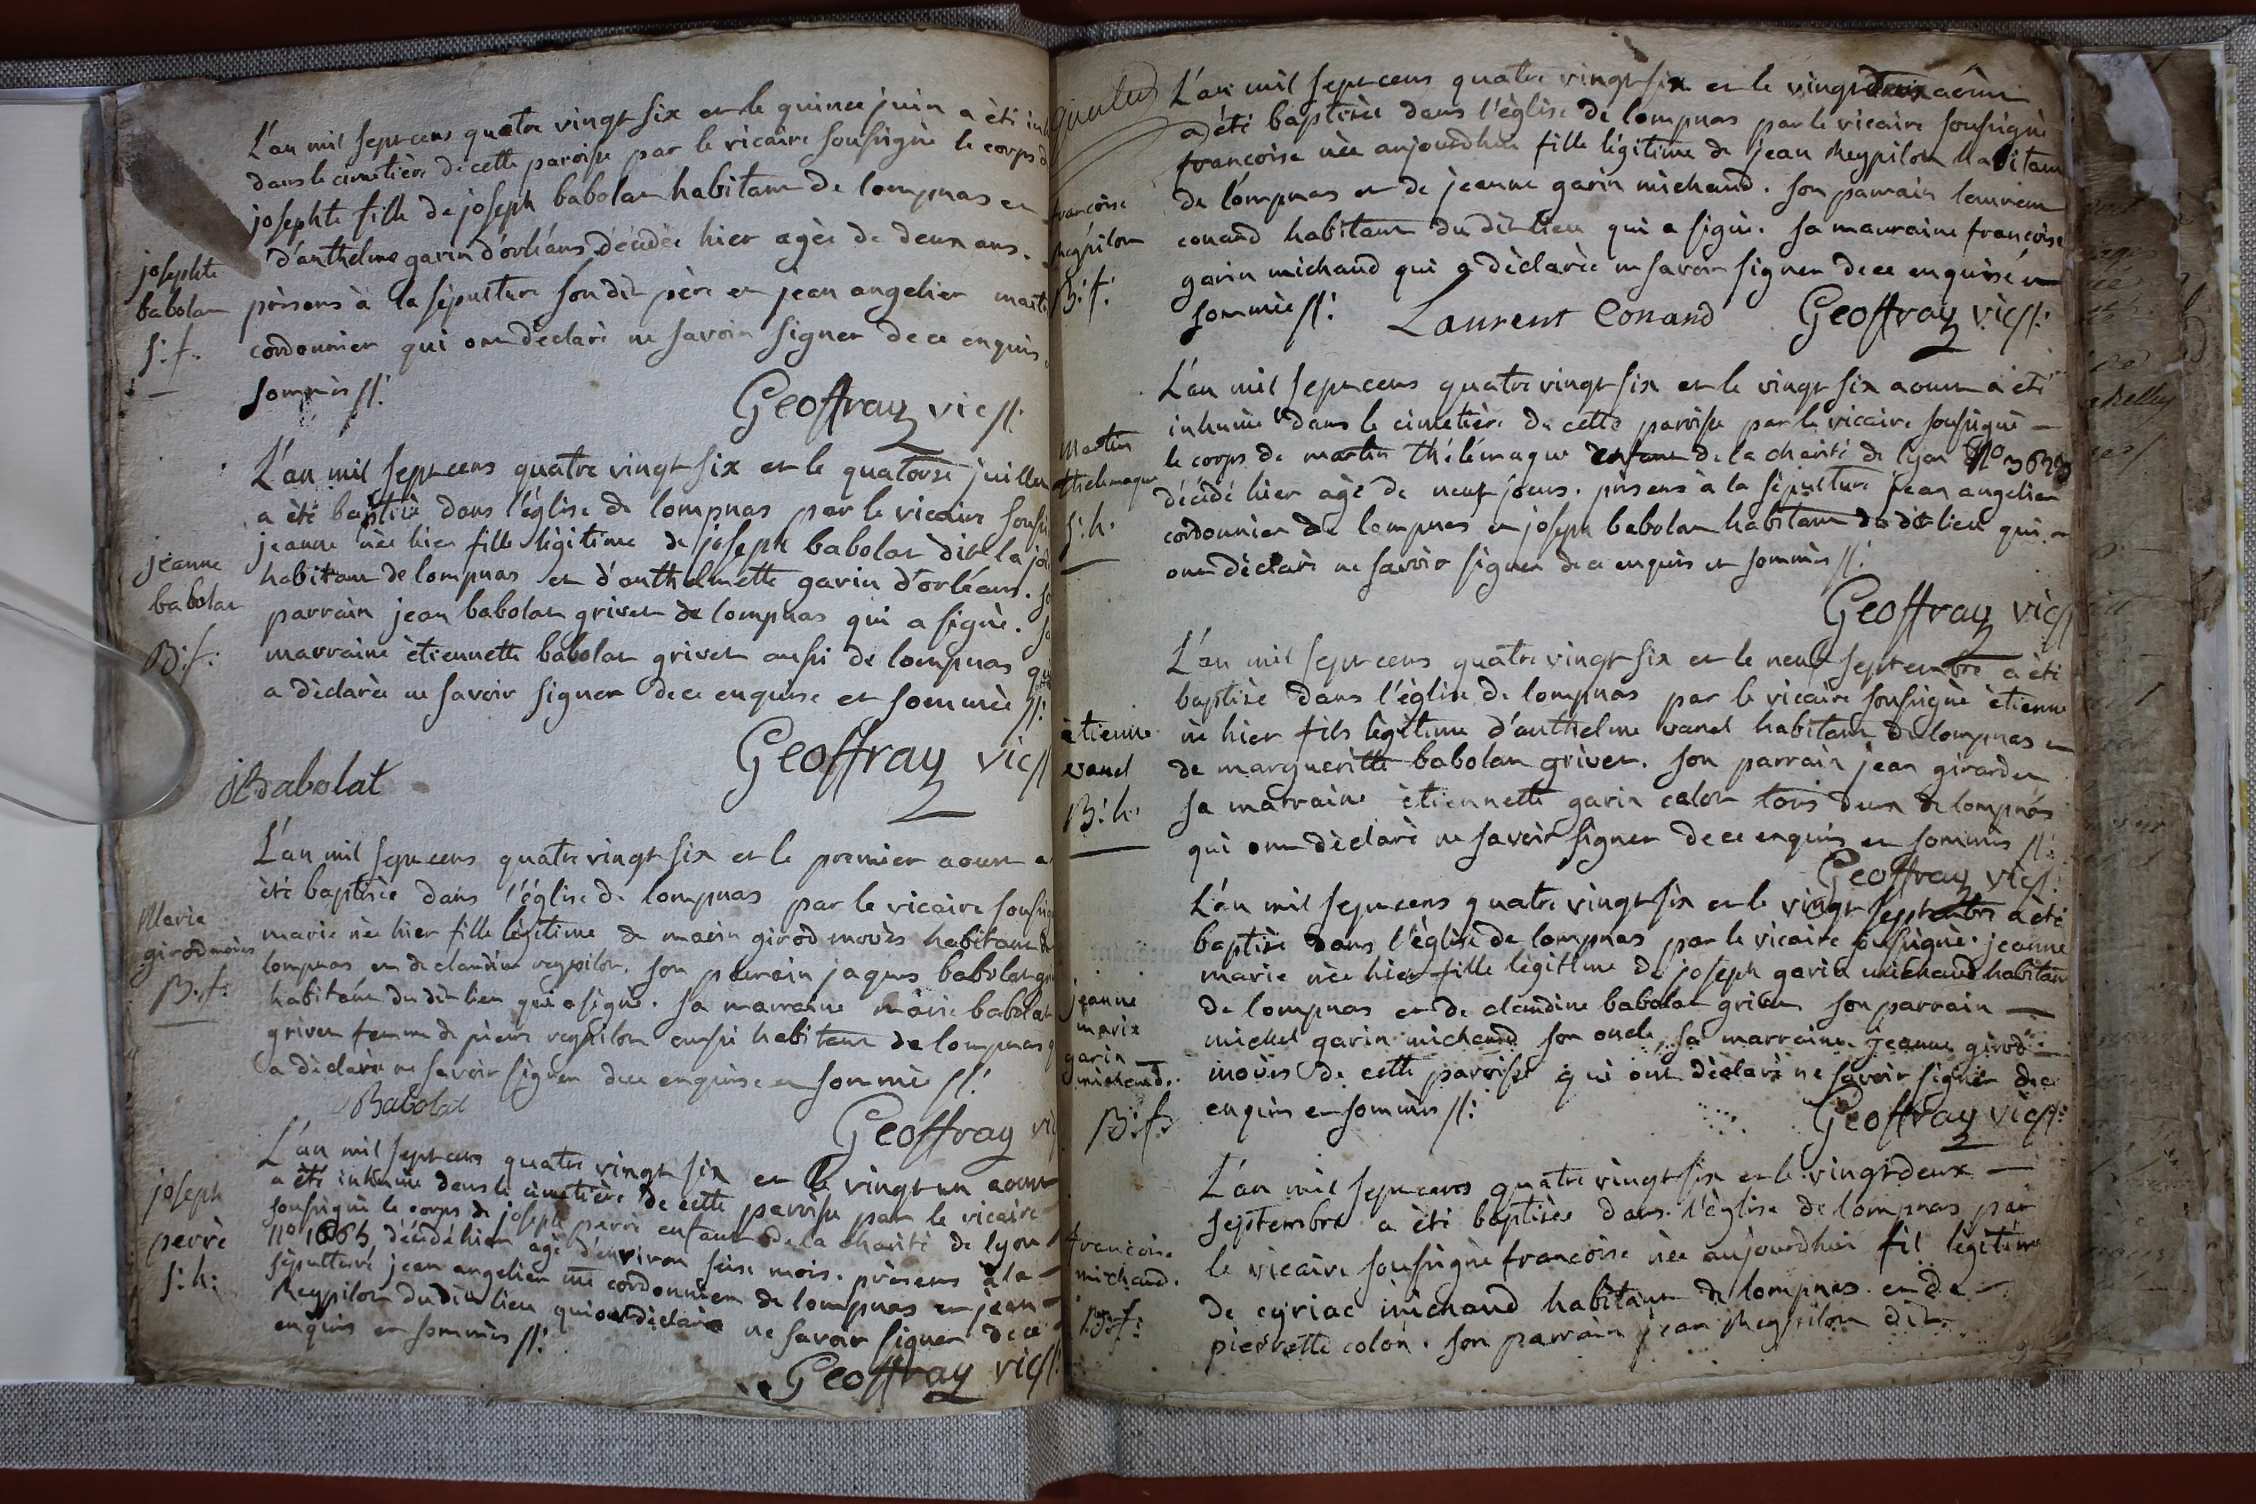 L'an mil sept cens quatre vingt six et le quince juin a èté
dans le cimetière de cette paroisse par le vicaire soussigné le corps d
josephte fille de joseph babolat habitant de lompnas et
d'anthelme garin d'orléans décédée hier agèe de deux ans.
présens à la sépulture son dit père et jean angelier
cordonnier qui ont dèclaré ne savoir signer de ce enquis
sommès //:
Geoffray vic//:
josephte
babolat
S: f.
L'an mil sept cens quatre vingt six et le quatorse juillet
a èté baptisée dans l'église de lompnas par le vicaire
jeanne nèe hier fille légitime de joseph babolat dit la
habitant de lompnas et d'anthelmette garin d'orléans.
parrain jean babolat grivet de lompnas qui a signé.
marraine ètiennette babolat grivet aussi de lompnas
a dèclarèe ne savoir signer de ce enquise et sommèe //:
Geoffray vic//
jBabolat
jeanne
babolat
B: f:
L'an mil sept cens quatre vingt six et le premier aoust a
èté baptisée dans l'église de lompnas par le vicaire
marie nèe hier fille légitime de marin girod movès habitant
lompnas et de claudine reypilon. son parrain jaques babolat
habitant du dit lieu qui a signé. sa marraine marie babolat
grivet femme de pierre reypilon aussi habitant de lompnas
a dèclarèe ne savoir signer de ce enquise et sommée //:
Babolat
Geoffray
Marie
girod movès
B: f:
L'an mil sept cens quatre vingt six et le vingt un aoust
a èté inhumé dans le cimetière de cette paroisse par le vicaire
soussigné le corps de joseph perré enfant de la charité de lyon
no 1065, décédé hier agé d'environ seise mois. présens à la
sépulture jean angelier cordonnier de lompnas et jean
Reypilon du dit lieu qui ont dèclaré ne savoir signer de ce
enquis et sommès //:
Geoffray vic//:
joseph
perré
S: h:
L'an mil sept cens quatre vingt six et le vingt deux aoust
a èté baptisèe dans l'èglise de lompnas par le vicaire soussigné
francoise nèe aujourdhui fille légitime de jean Reypilon habitant
de lompnas et de jeanne garin michaud. son parrain laurent
conand habitant du dit lieu qui a signé. sa marraine francoise
garin michaud qui a dèclarèe ne savoir signer de ce enquise et
sommèe //: Laurent Conand Geoffray vic//:
francoise
Reypilon
B: f:
L'an mil sept cens quatre vingt six et le vingt six aoust a èté
inhumé dans le cimetière de cette paroisse par le vicaire soussigné
le corps de martin thélémaque enfant de la charité de lyon No
décédé hier agé de neuf jours. présens à la sépulture jean angelier
cordonnier de lompnas et joseph babolat habitant du dit lieu qui
ont dèclaré ne savoir signer de ce enquis et sommès //:
Geoffray vic//
Martin
thelemaque
S: h:
L'an mil sept cens quatre vingt six et le neuf septembre a èté
baptisé dans l'église de lompnas par le vicaire soussigné ètienne
né hier fils légitime d'anthelme vanel habitant de lompnas et
de margueritte babolat grivet. son parrain jean girardet
sa marraine ètiennette garin calot tous deux de lompnas
qui ont dèclaré ne savoir signer de ce enquis et sommès //:
Geoffray vic//:
ètienne
vanel
B: h:
L'an mil sept cens quatre vingt six et le vingt septembre a èté
baptisée dans l'église de lompnas par le vicaire soussigné jeanne
marie née hier fille légitime de joseph garin michaud habitant
de lompnas et de claudine babolat grivet son parrain
michel garin michaud son oncle, sa marraine jeanne girod
movès de cette paroisse qui ont dèclaré ne savoir signer de ce
enquis et sommès //:
Geoffray vic//:
jeanne
marie
garin
michaud.
B: f:
L'an mil sept cens quatre vingt six et le vingt deux
septembre a èté baptisèe dans l'église de lompnas par
le vicaire soussigné francoise nèe aujourdhui fil légitime
de cyriac michaud habitant de lompnas et de
pierrette colon. son parrain jean Reypilon dit
francoise
michaud.
B: f: